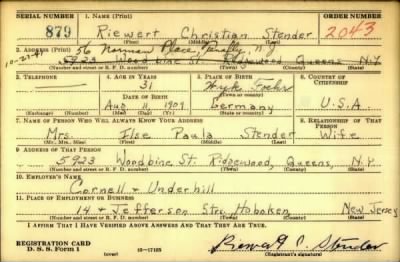 SERIAL NUMBER 1. NAME (Print) ORDER NUMBER
879 Riewert Christian Stender 2043
(First) (Middle) (Last)
2. ADDRESS (Print) 56 Norman Place, Tenafly, N.J.
10-27-41 5923 Woodbine St. Ridgewood Queens N.Y.
(Number and street or R. F. D. number) (Town) (County) (State)
3. TELEPHONE 4. AGE IN YEARS 5. PLACE OF BIRTH 6. COUNTRY OF CITIZENSHIP
31 Wyk, Foehr
DATE OF BIRTH (Town or county)
Aug 11 1909 Germany U.S.A.
(Exchange) (Number) (Mo.) (Day) (Yr.) (State or country)
7. NAME OF PERSON WHO WILL ALWAYS KNOW YOUR ADDRESS 8. RELATIONSHIP OF THAT PERSON
Mrs. Ilse Paula Stender Wife
(Mr., Mrs., Miss) (First) (Middle) (Last)
9. ADDRESS OF THAT PERSON
5923 Woodbine St. Ridgewood, Queens, N.Y.
(Number and street or R. F. D. number) (Town) (County) (State)
10. EMPLOYER'S NAME
Cornell & Underhill
11. PLACE OF EMPLOYMENT OR BUSINESS
14 & Jefferson Strs. Hoboken, New Jersey
(Number and street or R. F. D. number) (Town) (County) (State)
I AFFIRM THAT I HAVE VERIFIED ABOVE ANSWERS AND THAT THEY ARE TRUE.
REGISTRATION CARD
D. S. S. Form 1 (over) 16-17105 Riewert C. Stender
(Registrant's signature)